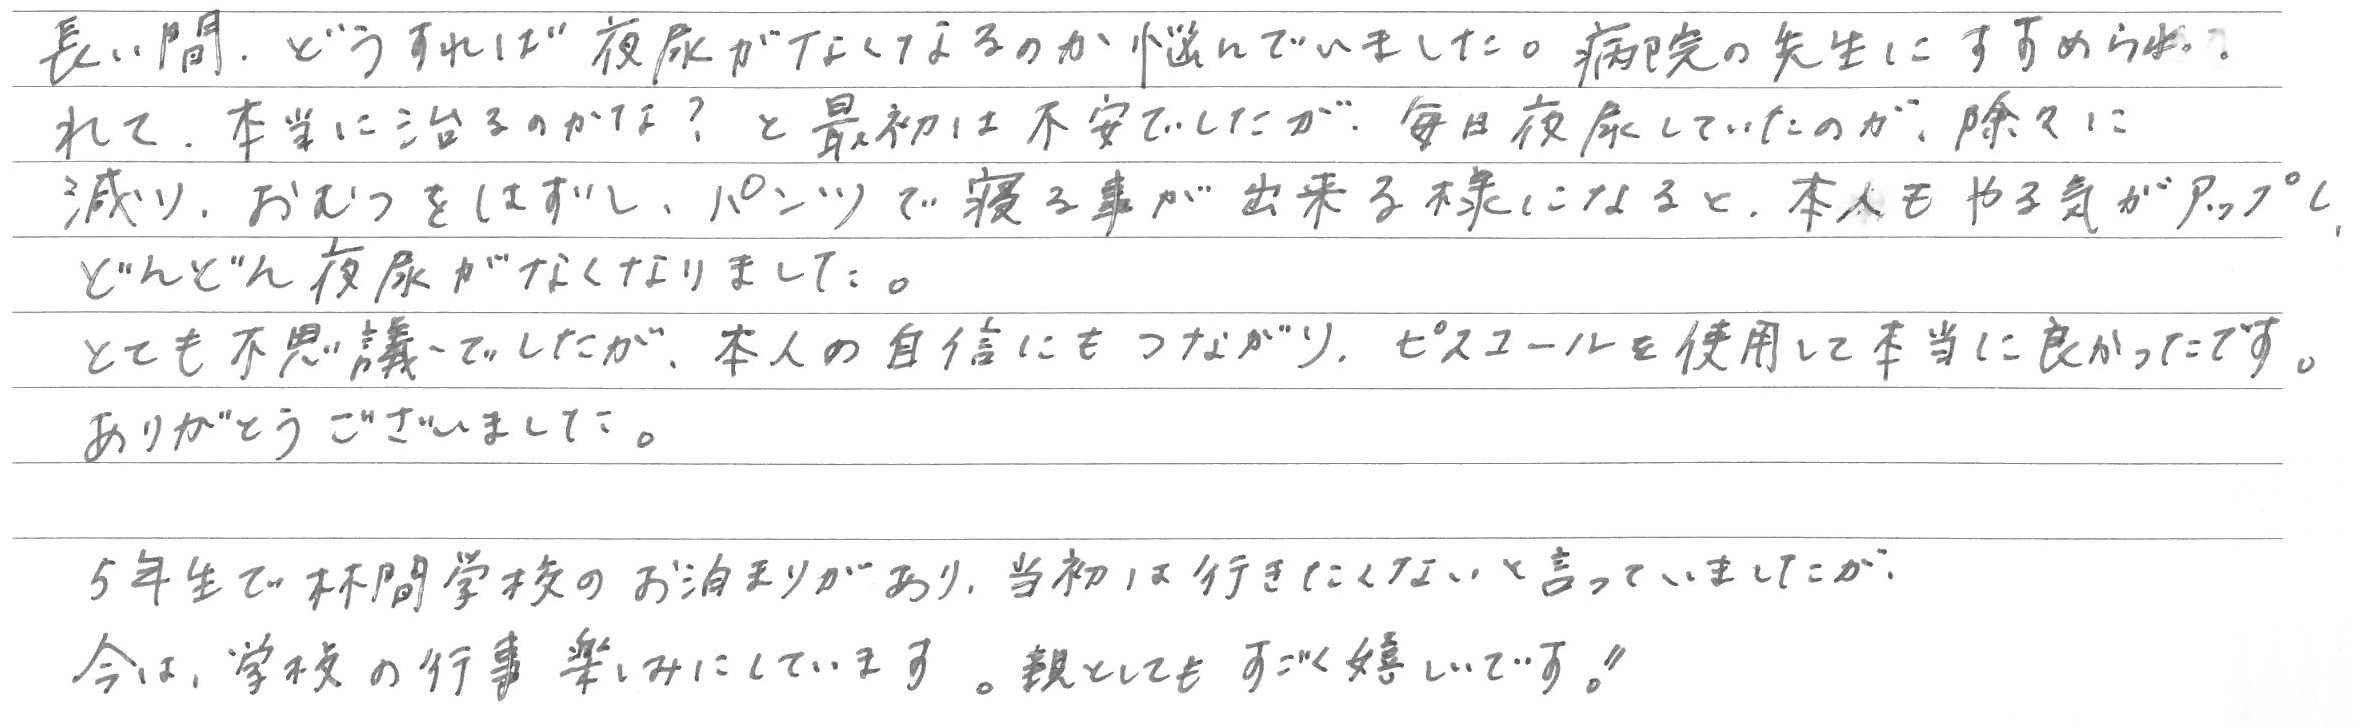 長い間、どうすれば夜尿がなくなるのか悩んでいました。病院の先生にすすめら
れて、本当に治るのかな？と最初は不安でしたが、毎日夜尿していたのが、除々に
減り、おむつをはずし、パンツで寝る事が出来る様になると、本人もやる気がアップし、
どんどん夜尿がなくなりました。
とても不思議でしたが、本人の自信にもつながり、ピスコールを使用して本当に良かったです。
ありがとうございました。
5年生で林間学校のお泊まりがあり、当初は行きたくないと言っていましたが、
今は、学校の行事楽しみにしています。親としてもすごく嬉しいです。!!